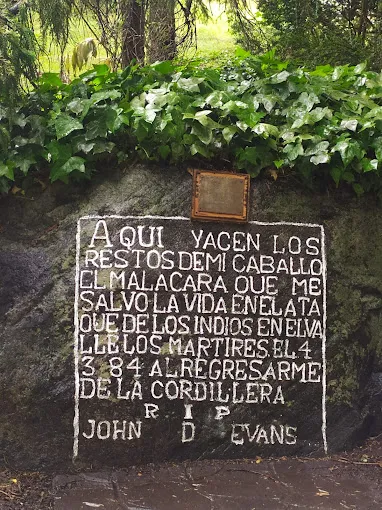 AQUI YACEN LOS
RESTOS DE MI CABALLO
EL MALACARA QUE ME
SALVO LA VIDA EN EL ATA
QUE DE LOS INDIOS EN EL VA
LLE LOS MARTIRES. EL 4
3 84 AL REGRESARME
DE LA CORDILLERA
R I P
JOHN D EVANS